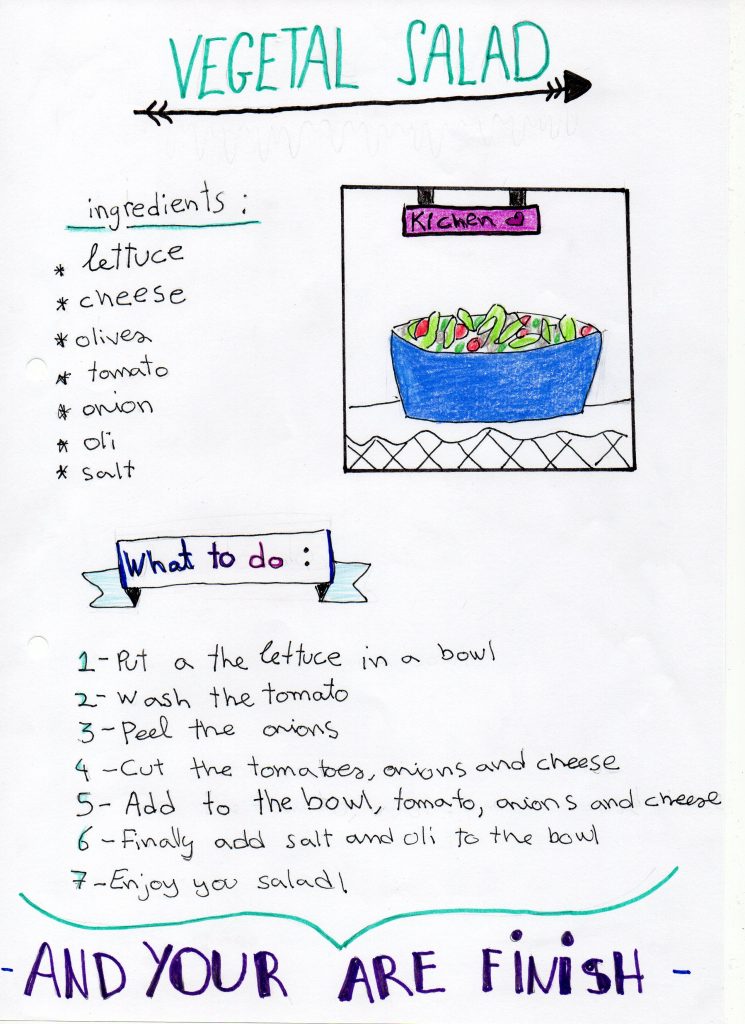 VEGETAL SALAD
ingredients :
* lettuce
* cheese
* olives
* tomato
* onion
* oli
* salt
KIchen
What to do :
1-Put a the lettuce in a bowl
2-Wash the tomato
3-Peel the onions
4-Cut the tomatoes, onions and cheese
5-Add to the bowl, tomato, onions and cheese
6-Finally add salt and oli to the bowl
7-Enjoy you salad!
-AND YOUR ARE FINISH-